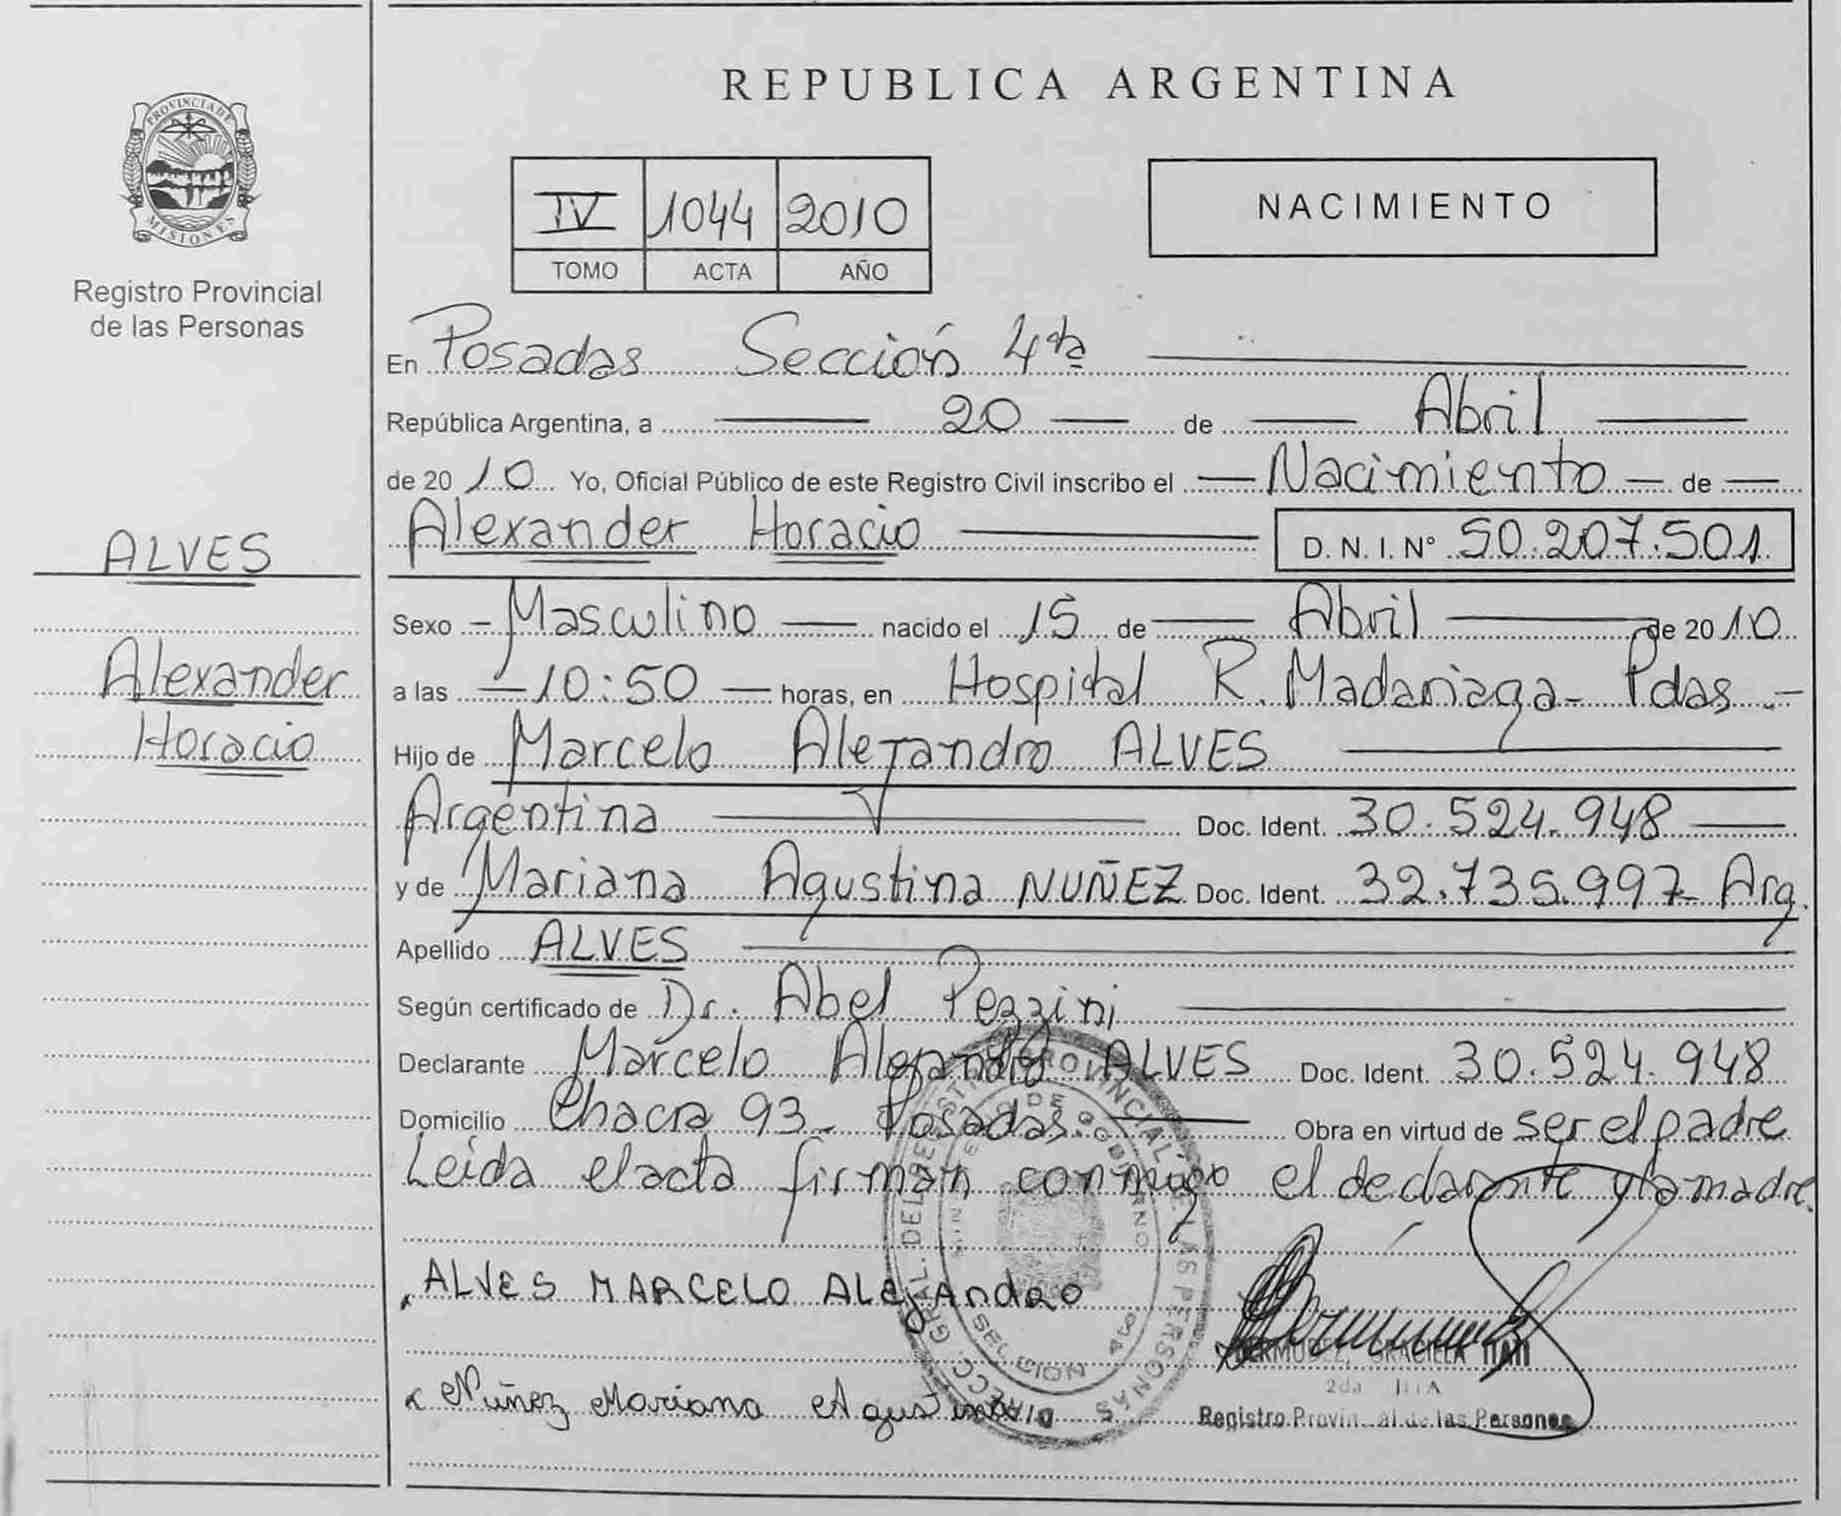 PROVINCIA DE
MISIONES
Registro Provincial
de las Personas
ALVES
Alexander
Horacio
REPUBLICA ARGENTINA
IV 1044 2010
TOMO ACTA AÑO
NACIMIENTO
En Posadas Sección 4ta
República Argentina, a 20 de Abril
de 2010 Yo, Oficial Público de este Registro Civil inscribo el Nacimiento de
Alexander Horacio D. N. I. Nº 50.207.501
Sexo Masculino nacido el 15 de Abril de 2010
a las 10:50 horas, en Hospital R. Madariaga - Pdas.-
Hijo de Marcelo Alejandro ALVES
Argentina Doc. Ident. 30.524.948
y de Mariana Agustina NUÑEZ Doc. Ident. 32.735.997- Arg.
Apellido ALVES
Según certificado de Dr. Abel Pezzini
Declarante Marcelo Alejandro ALVES Doc. Ident. 30.524.948
Domicilio Chacra 93- Posadas. Obra en virtud de ser el padre
Leída el acta firman conmigo el declarante y la madre.
ALVES MARCELO ALEjAndRO
Nuñez Mariana Agustina
DIRECC. GRAL. DEL REGISTRO PROVINCIAL DE LAS PERSONAS
DE GOBIERNO
BERMUDEZ, GRACIELA ITATI
2da
Registro Provincial de las Personas